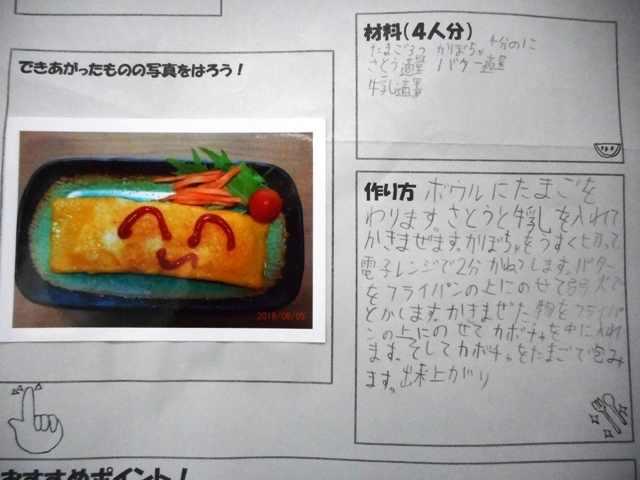 できあがったものの写真をはろう!
2018/08/05
材料(4人分)
たまご3つ かぼちゃ 4分の1こ
さとう適量 バター適量
牛乳適量
作り方 ボウルにたまごを
わります。さとうと牛乳を入れて
かきまぜます。かぼちゃをうすく切って
電子レンジで2分かねつします。バター
をフライパンの上にのせて弱火で
とかします。かきまぜた物をフライパ
ンの上にのせてカボチャを中に入れ
ます。そしてカボチャをたまごで包み
ます。出来上がり
おすすめポイント!